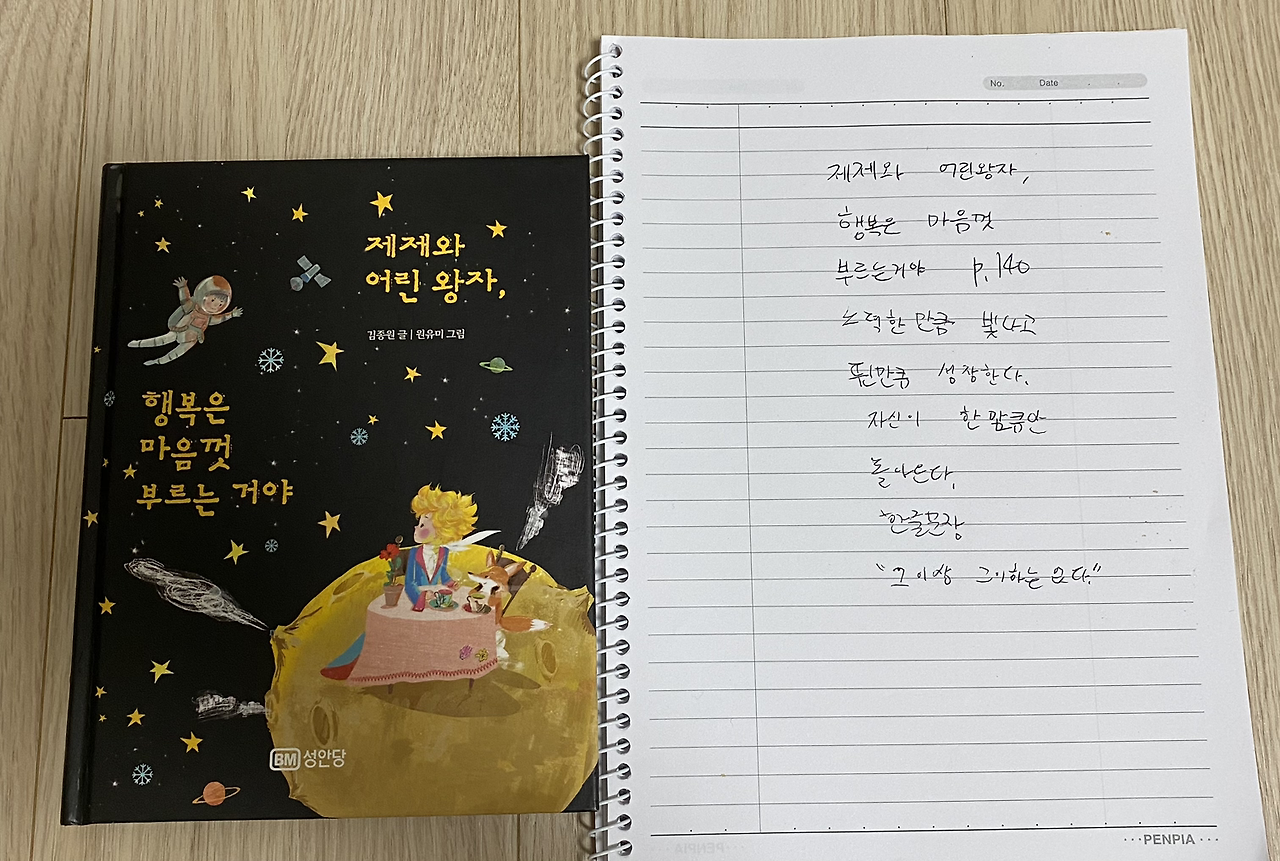 제제와
어린 왕자,
김종원 글 | 원유미 그림
행복은
마음껏
부르는 거야
BM 성안당
No. Date
제제와 어린왕자,
행복은 마음껏
부르는거야 p.140
노력한만큼 빛나고
뛴만큼 성장한다.
자신이 한 만큼만
돌아온다,
한줄문장
"그 이상 그이하는 
PENPIA